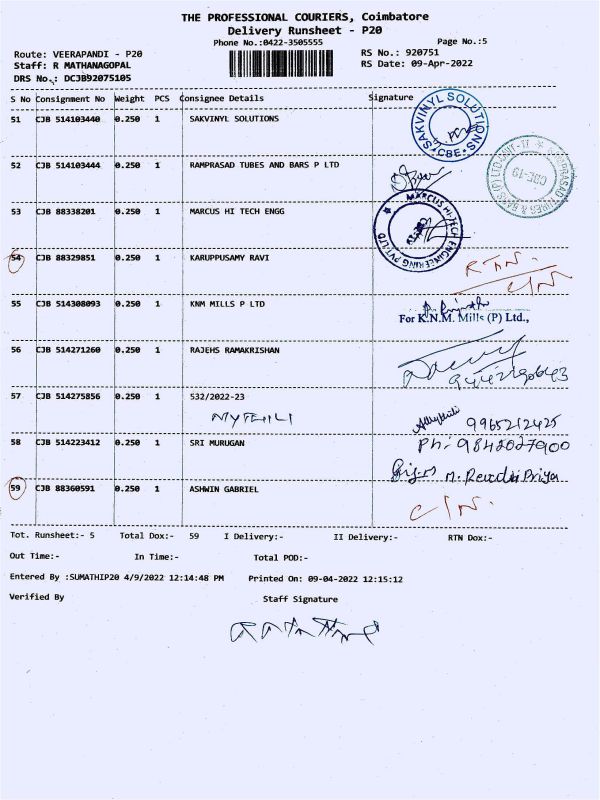 THE PROFESSIONAL COURIERS, Coimbatore
Delivery Runsheet - P20
Phone No.:0422-3505555
Page No.:5
Route: VEERAPANDI - P20
RS No.: 920751
Staff: R MATHANAGOPAL
RS Date: 09-Apr-2022
DRS No.: DCJB92075105
S No Consignment No Weight PCS Consignee Details Signature
51 CJB 514103440 0.250 1 SAKVINYL SOLUTIONS
SAKVINYL SOLUTIONS
CBE
52 CJB 514103444 0.250 1 RAMPRASAD TUBES AND BARS P LTD
RAMPRASAD TUBES & BARS (P) LTD-UNIT-II
CBE-19
53 CJB 88338201 0.250 1 MARCUS HI TECH ENGG
MARCUS HI-TECH ENGINEERING PVT LTD
54 CJB 88329851 0.250 1 KARUPPUSAMY RAVI
RTN.
C/N
55 CJB 514308093 0.250 1 KNM MILLS P LTD
For K.N.M. Mills (P) Ltd.,
56 CJB 514271260 0.250 1 RAJEHS RAMAKRISHAN
57 CJB 514275856 0.250 1 532/2022-23
MYTHILI
9965212425
58 CJB 514223412 0.250 1 SRI MURUGAN
Ph: 9842027900
59 CJB 88360591 0.250 1 ASHWIN GABRIEL
C/N.
Tot. Runsheet:- 5 Total Dox:- 59 I Delivery:- II Delivery:- RTN Dox:-
Out Time:- In Time:- Total POD:-
Entered By :SUMATHIP20 4/9/2022 12:14:48 PM Printed On: 09-04-2022 12:15:12
Verified By Staff Signature